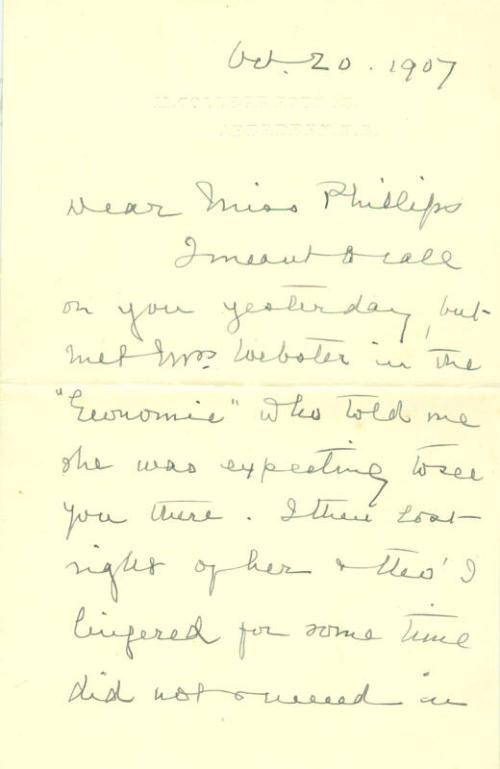 Oct. 20. 1907
ABERDEEN, N.B.
Dear Miss Phillips
I meant to call
on you yesterday, but
met Mrs. Webster in the
"Economic" who told me
she was expecting to see
you there. I then lost
sight of her & tho' I
lingered for some time
did not succeed in